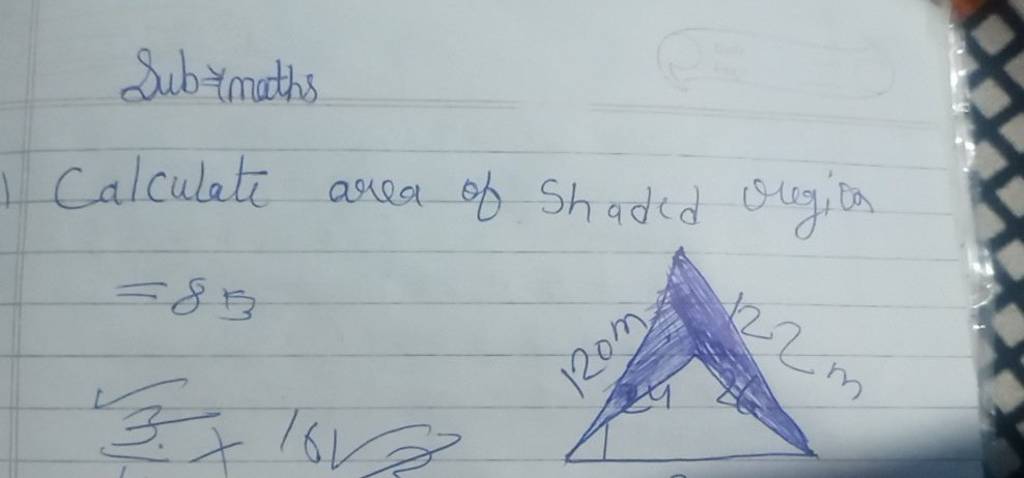 Sub → maths
1) Calculate area of Shaded region
= 8
120 m
122 m
24
3 × 16√3